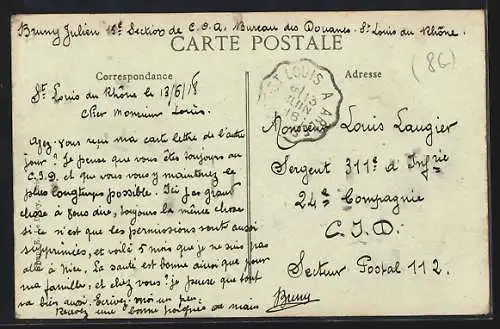 Bruny Julien 15e Section de C.O.A. Bureau des Douanes. St Louis du Rhône.
CARTE POSTALE
(86)
Correspondance
Adresse
ST LOUIS A ARLES
13 JUIN 18
St Louis du Rhône le 13/6/18
Cher Monsieur Louis
Avez vous reçu ma carte lettre de l'autre
jour? Je pense que vous êtes toujours au
C.I.D. et que vous vous y maintenez le
plus longtemps possible. Ici pas grand
chose à vous dire, toujours la même chose
si ce n'est que les permissions sont aussi
supprimées, et voilà 5 mois que je ne suis pas
allé à Nice. La santé est bonne ainsi que pour
ma famille, et chez vous? je pense que tout
va bien aussi. Ecrivez-moi un peu.
Recevez une bonne poignée de main
Bruny
Monsieur Louis Laugier
Sergent 311e d'Infrie
24e Compagnie
C.I.D.
Secteur Postal 112.